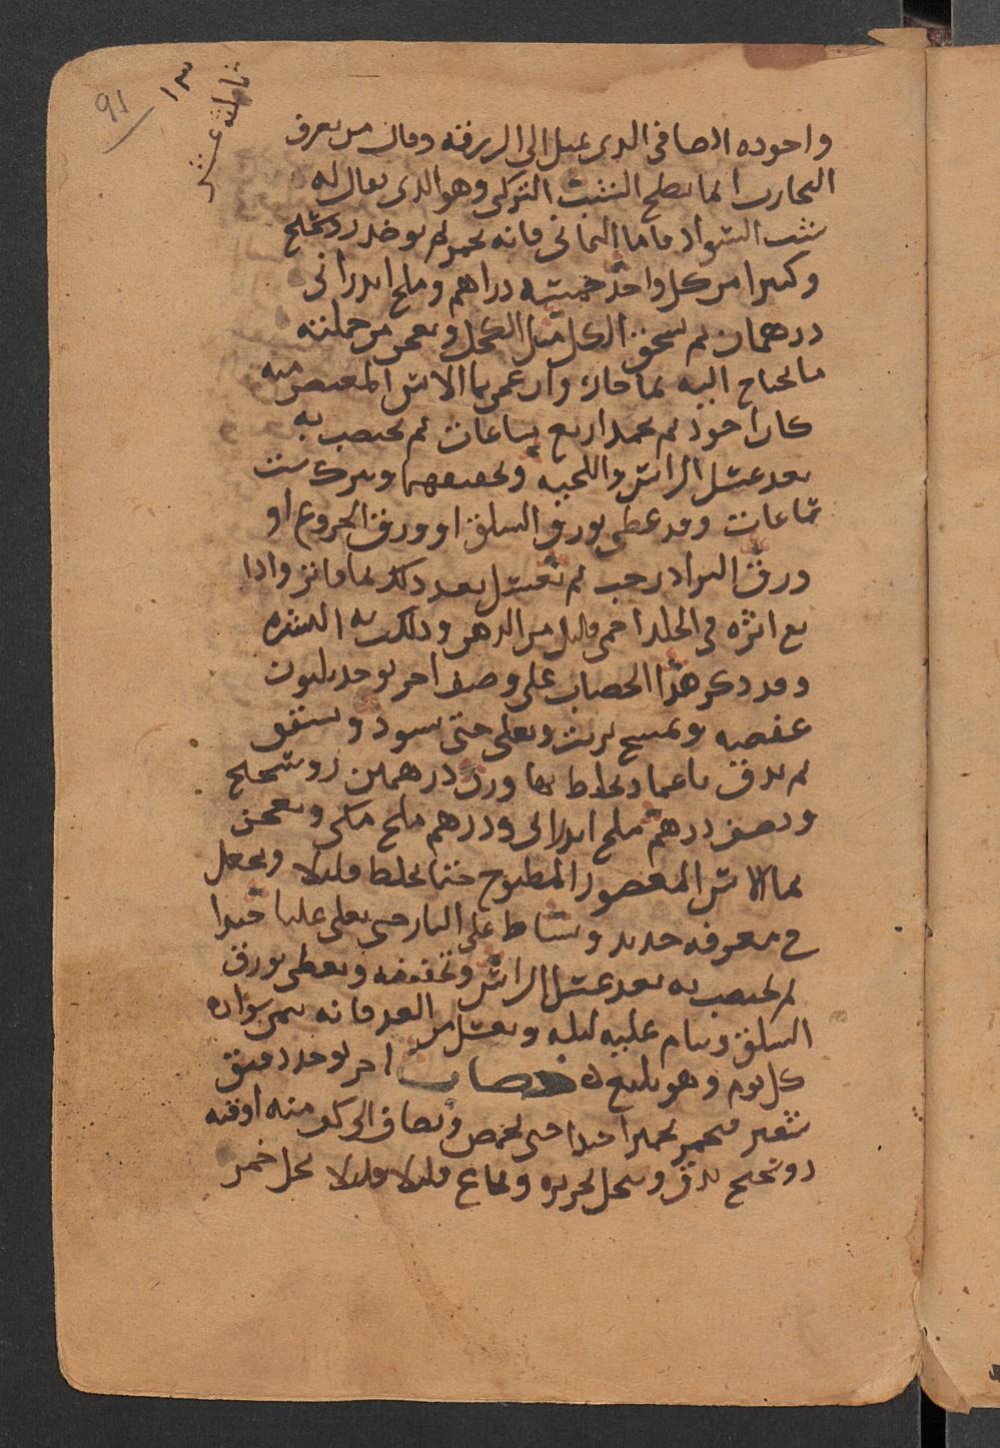 91
١٣
ثالثة عشر
واجوده الصافى الدى يميل الى الزرقه وقال من يعرف
التجارب انما يصلح الشب التركى وهو الدى يقال له
شب السواد فاما اليمانى فانه يحمر ثم يوخد روسختج
وكثيرا من كل واحد خمسه دراهم وملح اندرانى
درهمان ثم يسحق الكل مثل الكحل ويعجن من جملته
ما يحتاج اليه بما حار وان عجن بما الاس المعتصر منه
كان اجود ثم يخمد اربع ساعات ثم يختضب به
بعد غسل الراس واللحيه وتجفيفهما ويترك ست
ساعات وقد غطى بورق السلق او ورق الخروع او
ورق الترا درخت ثم تغسل بعد دلك بما فاتر وادا
بقى اثره فى الجلد اخد قليل من الدهن ودلكت به البشره
وقد دكر هدا الخضاب على وصف اخر يوخد ثلثون
عفصه وتمسح بزيت ويقلى حتى يسود ويتشقق
ثم يدق ناعما ويخلط بها وزن درهمين روسختج
ونصف درهم ملح اندرانى ودرهم ملح مكى ويعجن
بما الاس المعصور المطبوخ حتما يخلط قليلا ويجعل
فى مغرفه حديد ويساط على النار حتى يغلى غليا جيدا
ثم يختضب به بعد غسل الراس وتجفيفه ويغطى بورق
السلق وينام عليه ليله ويغسل من الغد فانه يبقى سواده
كل يوم وهو بليغ ه خضاب اخر يوخد دقيق
شعير فيخمر تخميرا جيدا حتى يحمض ويضاف الى كل منه اوقيه
روسختج يدق وينخل بحريره ويماع قليلا قليلا بخل خمر